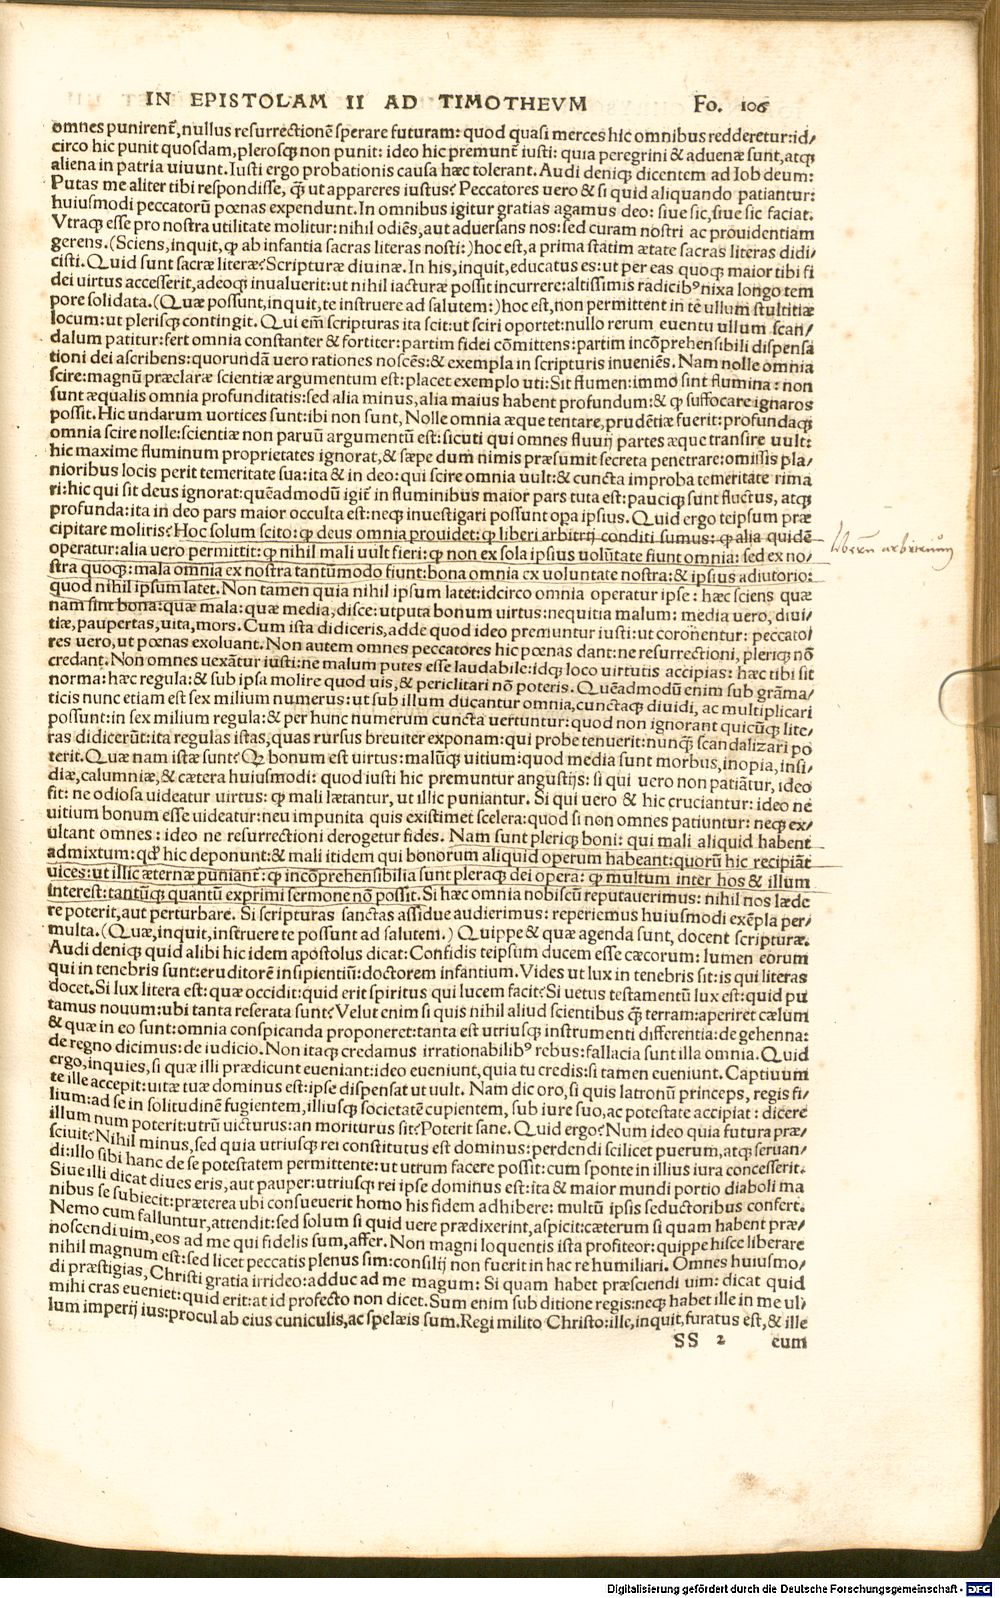 IN EPISTOLAM II AD TIMOTHEVM Fo. 106
omnes punirent̃, nullus resurrectionẽ sperare futuram: quod quasi merces hic omnibus redderetur: id/
circo hic punit quosdam, plerosq; non punit: ideo hic premunt̃ iusti: quia peregrini & aduenæ sunt, atq;
aliena in patria uiuunt. Iusti ergo probationis causa hæc tolerant. Audi deniq; dicentem ad Iob deum:
Putas me aliter tibi respondisse, q̃ ut appareres iustus? Peccatores uero & si quid aliquando patiantur:
huiusmodi peccatorũ pœnas expendunt. In omnibus igitur gratias agamus deo: siue sic, siue sic faciat.
Vtraq; esse pro nostra utilitate molitur: nihil odiẽs, aut aduersans nos: sed curam nostri ac prouidentiam
gerens. (Sciens, inquit, ꝙ ab infantia sacras literas nosti:) hoc est, a prima statim ætate sacras literas didi/
cisti. Quid sunt sacræ literæ? Scripturæ diuinæ. In his, inquit, educatus es: ut per eas quoq; maior tibi fi
dei uirtus accesserit, adeoq; inualuerit: ut nihil iacturæ possit incurrere: altissimis radicibꝰ nixa longo tem
pore solidata. (Quæ possunt, inquit, te instruere ad salutem:) hoc est, non permittent in te ullum stultitiæ
locum: ut plerisq; contingit. Qui em̃ scripturas ita scit: ut sciri oportet: nullo rerum euentu ullum scan/
dalum patitur: fert omnia constanter & fortiter: partim fidei cõmittens: partim incõprehensibili dispensa
tioni dei ascribens: quorundã uero rationes noscẽs: & exempla in scripturis inueniẽs. Nam nolle omnia
scire: magnũ præclaræ scientiæ argumentum est: placet exemplo uti: Sit flumen: immo sint flumina: non
sunt æqualis omnia profunditatis: sed alia minus, alia maius habent profundum: & ꝙ suffocare ignaros
possit. Hic undarum uortices sunt: ibi non sunt, Nolle omnia æque tentare, prudẽtiæ fuerit: profundaq;
omnia scire nolle: scientiæ non paruũ argumentũ est: sicuti qui omnes fluuij partes æque transire uult:
hic maxime fluminum proprietates ignorat, & sæpe dum nimis præsumit secreta penetrare: omissis pla/
nioribus locis perit temeritate sua: ita & in deo: qui scire omnia uult: & cuncta improba temeritate rima
ri: hic qui sit deus ignorat: quẽadmodũ igit̃ in fluminibus maior pars tuta est: pauciq; sunt fluctus, atq;
profunda: ita in deo pars maior occulta est: neq; inuestigari possunt opa ipsius. Quid ergo teipsum præ
cipitare moliris? Hoc solum scito: ꝙ deus omnia prouidet: ꝙ liberi arbitrij conditi sumus: ꝙ alia quidẽ
operatur: alia uero permittit: ꝙ nihil mali uult fieri: ꝙ non ex sola ipsius uolũtate fiunt omnia: sed ex no/
liberũ arbitriũ
stra quoq;: mala omnia ex nostra tantũmodo fiunt: bona omnia ex uoluntate nostra: & ipsius adiutorio:
quod nihil ipsum latet. Non tamen quia nihil ipsum latet: idcirco omnia operatur ipse: hæc sciens quæ
nam sint bona: quæ mala: quæ media, disce: utputa bonum uirtus: nequitia malum: media uero, diui/
tiæ, paupertas, uita, mors. Cum ista didiceris, adde quod ideo premuntur iusti: ut coronentur: peccato/
res uero, ut pœnas exoluant. Non autem omnes peccatores hic pœnas dant: ne resurrectioni, pleriq; nõ
credant. Non omnes uexãtur iusti: ne malum putes esse laudabile: idq; loco uirtutis accipias: hæc tibi sit
norma: hæc regula: & sub ipsa molire quod uis, & periclitari nõ poteris. Quẽadmodũ enim sub grãma/
ticis nunc etiam est sex milium numerus: ut sub illum ducantur omnia, cunctaq; diuidi, ac multiplicari
possunt: in sex milium regula: & per hunc numerum cuncta uertuntur: quod non ignorant quicũq; lite/
ras didicerũt: ita regulas istas, quas rursus breuiter exponam: qui probe tenuerit: nunq̃ scandalizari po
terit. Quæ nam istæ sunt? Q; bonum est uirtus: malũq; uitium: quod media sunt morbus, inopia, insi/
diæ, calumniæ, & cætera huiusmodi: quod iusti hic premuntur angustijs: si qui uero non patiãtur, ideo
fit: ne odiosa uideatur uirtus: ꝙ mali lætantur, ut illic puniantur. Si qui uero & hic cruciantur: ideo ne
uitium bonum esse uideatur: neu impunita quis existimet scelera: quod si non omnes patiuntur: neq; ex/
ultant omnes: ideo ne resurrectioni derogetur fides. Nam sunt pleriq; boni: qui mali aliquid habent
admixtum: qđ hic deponunt: & mali itidem qui bonorum aliquid operum habeant: quorũ hic recipiãt
uices: ut illic æternæ puniant̃: ꝙ incõprehensibilia sunt pleraq; dei opera: ꝙ multum inter hos & illum
interest: tantũq; quantũ exprimi sermone nõ possit. Si hæc omnia nobiscũ reputauerimus: nihil nos læde
re poterit, aut perturbare. Si scripturas sanctas assidue audierimus: reperiemus huiusmodi exẽpla per/
multa. (Quæ, inquit, instruere te possunt ad salutem.) Quippe & quæ agenda sunt, docent scripturæ.
Audi deniq; quid alibi hic idem apostolus dicat: Confidis teipsum ducem esse cæcorum: lumen eorum
qui in tenebris sunt: eruditorẽ insipientiũ: doctorem infantium. Vides ut lux in tenebris sit: is qui literas
docet. Si lux litera est: quæ occidit: quid erit spiritus qui lucem facit? Si uetus testamentũ lux est: quid pu
tamus nouum: ubi tanta reserata sunt? Velut enim si quis nihil aliud scientibus q̃ terram: aperiret cælum
& quæ in eo sunt: omnia conspicanda proponeret: tanta est utriusq; instrumenti differentia: de gehenna:
de regno dicimus: de iudicio. Non itaq; credamus irrationabilibꝰ rebus: fallacia sunt illa omnia. Quid
ergo, inquies, si quæ illi prædicunt eueniant: ideo eueniunt, quia tu credis: si tamen eueniunt. Captiuum
te ille accepit: uitæ tuæ dominus est: ipse dispensat ut uult. Nam dic oro, si quis latronũ princeps, regis fi/
lium: ad se in solitudinẽ fugientem, illiusq; societatẽ cupientem, sub iure suo, ac potestate accipiat: dicere
illum num poterit: utrũ uicturus: an moriturus sit? Poterit sane. Quid ergo? Num ideo quia futura præ/
sciuit? Nihil minus, sed quia utriusq; rei constitutus est dominus: perdendi scilicet puerum, atq; seruan/
di: illo sibi hanc de se potestatem permittente: ut utrum facere possit: cum sponte in illius iura concesserit.
Siue illi dicat diues eris, aut pauper: utriusq; rei ipse dominus est: ita & maior mundi portio diaboli ma
nibus se subiecit: præterea ubi consueuerit homo his fidem adhibere: multũ ipsis seductoribus confert.
Nemo cum falluntur, attendit: sed solum si quid uere prædixerint, aspicit: cæterum si quam habent præ/
noscendi uim, eos ad me qui fidelis sum, affer. Non magni loquentis ista profiteor: quippe hisce liberare
nihil magnum est: sed licet peccatis plenus sim: consilij non fuerit in hac re humiliari. Omnes huiusmo/
di præstigias, Christi gratia irrideo: adduc ad me magum: Si quam habet præsciendi uim: dicat quid
mihi cras eueniet: quid erit: at id profecto non dicet. Sum enim sub ditione regis: neq; habet ille in me ul/
lum imperij ius: procul ab eius cuniculis, ac spelæis sum. Regi milito Christo: ille, inquit, furatus est, & ille
SS 2 eum
Digitalisierung gefördert durch die Deutsche Forschungsgemeinschaft - DFG